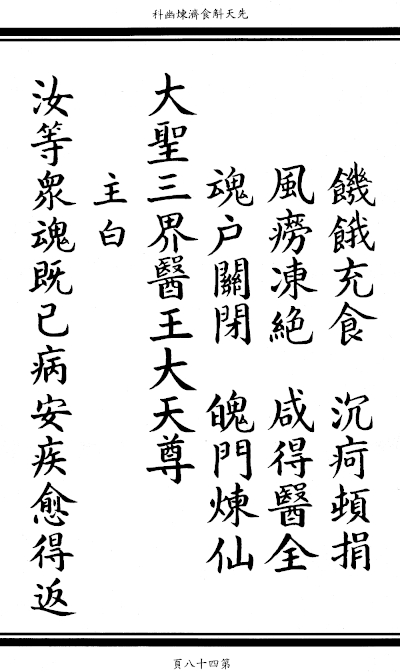 先天斛食濟煉幽科
饑餓充食　沉疴頓捐
風癆凍絕　咸得醫全
魂户關閉　魄門煉仙
大聖三界醫王大天尊
主白
汝等眾魂既已病安疾愈得返
第四十八頁